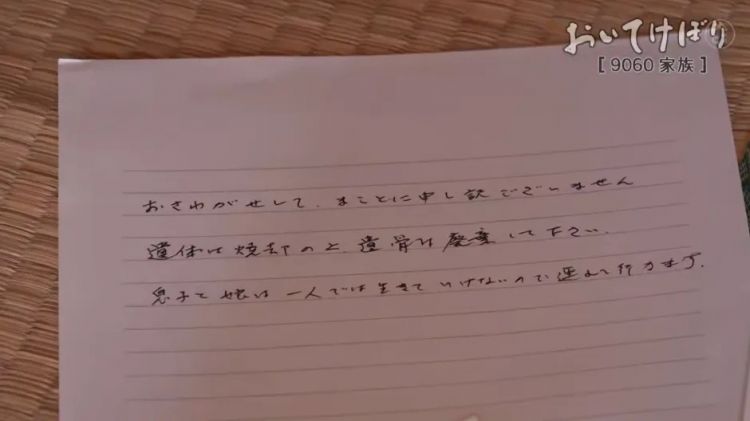 おいてけぼり
[ 9060 家族 ]
おさわがせして、まことに申し訳ございません
遺体は焼却の上、遺骨は廃棄して下さい.
息子と娘は一人では生きていけないので連れて行カます.